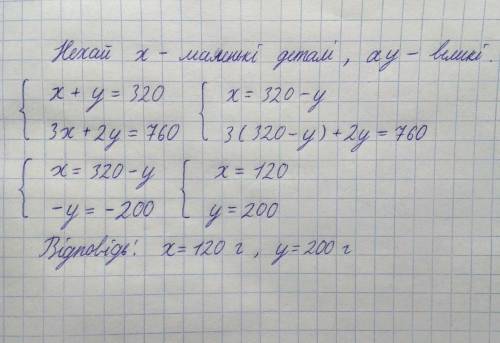 Нехай x - маленькі деталі, а y - великі.
{ x + y = 320 { x = 320 - y
3x + 2y = 760 3(320 - y) + 2y = 760
{ x = 320 - y { x = 120
-y = -200 y = 200
Відповідь: x = 120 г, y = 200 г